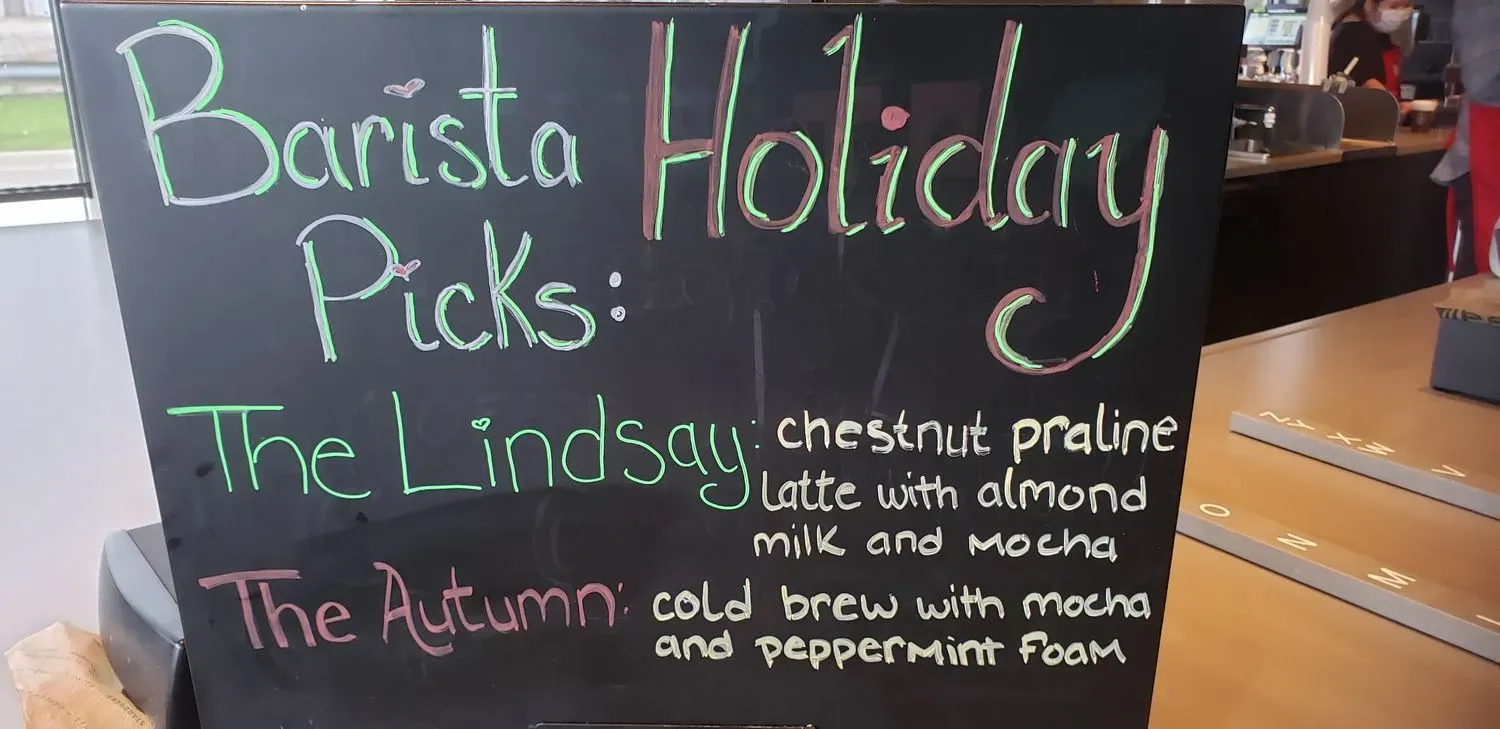 Barista Holiday
Picks:
The Lindsay: chestnut praline
latte with almond
milk and mocha
The Autumn: cold brew with mocha
and peppermint foam
O N M